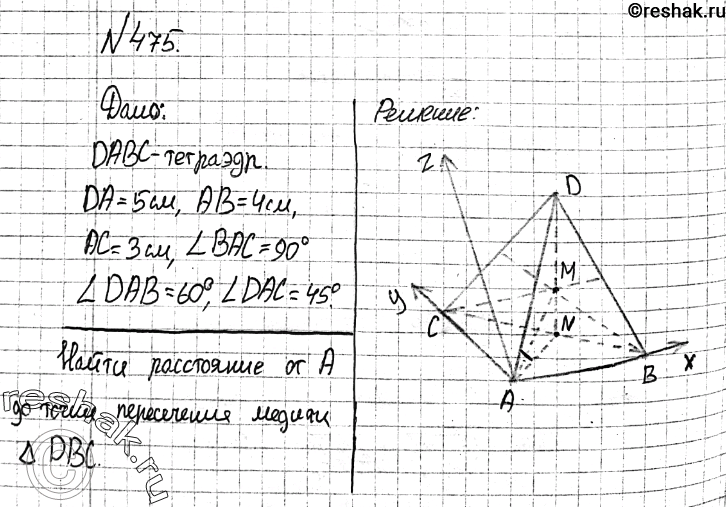 ©reshak.ru
№475.
Дано:
DABC-тетраэдр.
DA=5см, AB=4см,
AC=3см, ∠BAC=90°
∠DAB=60°, ∠DAC=45°
Найти расстояние от A
до точки пересечения медиан
Δ DBC.
Решение:
z
D
M
y
C
N
B
x
A
reshak.ru
©